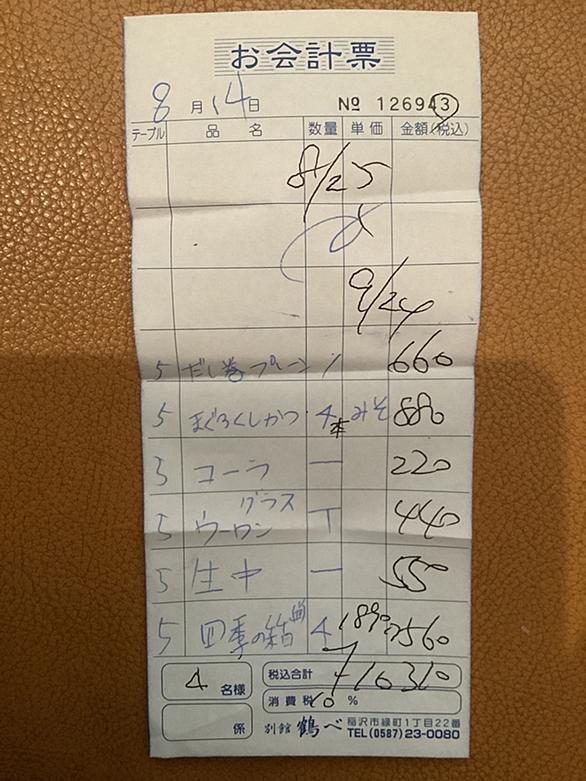 お会計票
8月14日 № 126943
テーブル 品名 数量 単価 金額(税込)
8/25
9/24
5 だし巻プレーン 1 660
5 まぐろくしかつ 4本 みそ 880
5 コーラ 一 220
5 ウーロン グラス T 440
5 生中 一 550
5 四季の箱 4 1890 7560
4名様 税込合計 10310
消費税10%
係 別館 鶴べ 稲沢市緑町1丁目22番
TEL(0587)23-0080